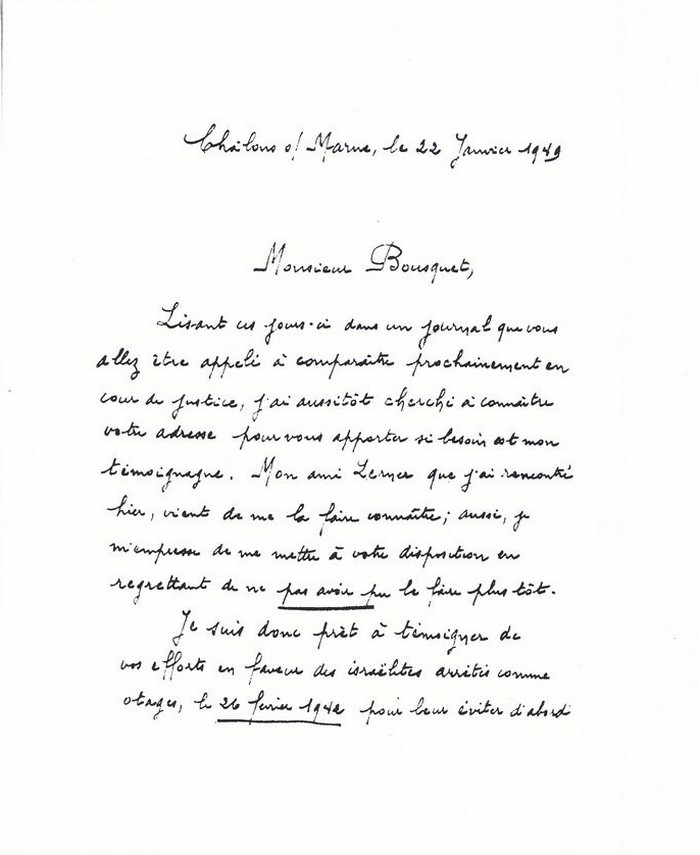 Châlons s/ Marne, le 22 Janvier 1949
Monsieur Bousquet,
Lisant ces jours-ci dans un journal que vous
allez être appelé à comparaître prochainement en
cour de justice, j'ai aussitôt cherché à connaître
votre adresse pour vous apporter si besoin est mon
témoignagne. Mon ami Lerner que j'ai rencontré
hier, vient de me la faire connaître; aussi, je
m'empresse de me mettre à votre disposition en
regrettant de ne pas avoir pu le faire plus tôt.
Je suis donc prêt à témoigner de
vos efforts en faveur des israëlites arrêtés comme
otages, le 26 février 1942 pour leur éviter d'abord